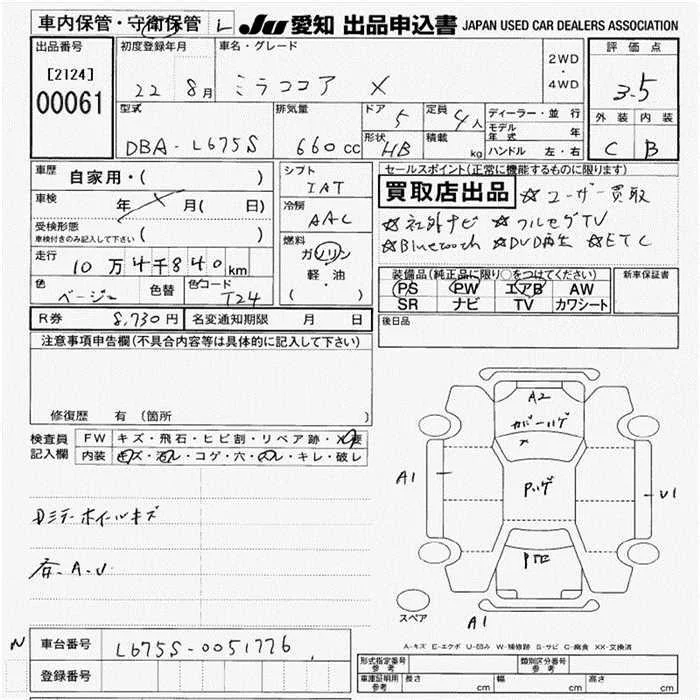 車内保管・守衛保管 レ JU 愛知 出品申込書 JAPAN USED CAR DEALERS ASSOCIATION
出品番号 初度登録年月 車名・グレード 2WD・4WD 評価点
[2124] 00061 22 8月 ミラココア X 3.5
型式 排気量 ドア 5 定員 4人 ディーラー・並行 外装 内装
モデル年式 年
DBA-L675S 660cc 形状 HB 積載 kg ハンドル 左・右 C B
車歴 自家用・( ) シフト セールスポイント(正常に機能するものに限ります)
IAT 買取店出品 ☆ユーザー買取
車検 年 月( 日) 冷房 ☆社外ナビ ☆フルセグTV
受検形態 AAC ☆Bluetooth ☆DVD再生 ☆ETC
車検付きのみ記入して下さい ( )
走行 10万4千840km 燃料 ガソリン 装備品(純正品に限り○をつけてください) 新車保証書
軽・油 PS PW エアB AW
色 ベージュ 色替 色コード T24 ( ) SR ナビ TV カワシート
R券 8,730円 名変通知期限 月 日 後日品
注意事項申告欄(不具合内容等は具体的に記入して下さい)
修復歴 有(箇所 )
検査員記入欄 FW キズ・飛石・ヒビ割・リペア跡・X要
内装 キズ・汚レ・コゲ・穴・スレ・キレ・破レ
A2
カバーハゲ
X
A1
Pハゲ
U1
Dミラーホイールキズ
各A.U
スペア
A1
A-キズ E-エクボ U-凹み W-補修跡 S-サビ C-腐食 XX-交換済
N 車台番号 L675S-0051776
登録番号
形式指定番号 参考 類別区分番号 参考
車庫証明用 参考 長さ cm 幅 cm 高さ cm